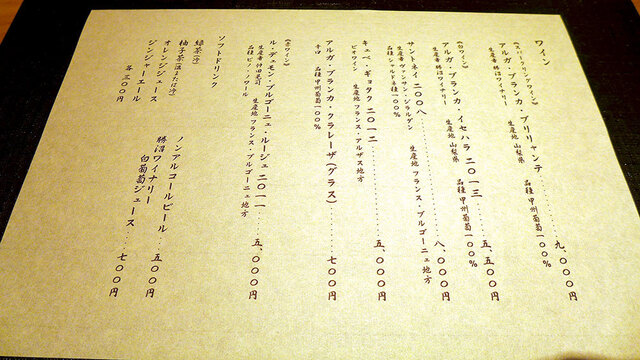 ワイン
《スパークリングワイン》
アルガ・ブランカ・ブリリャンテ………九、〇〇〇円
生産者 勝沼ワイナリー 生産地 山梨県 品種 甲州葡萄一〇〇%
《白ワイン》
アルガ・ブランカ・イセハラ 二〇一三………五、五〇〇円
生産者 勝沼ワイナリー 生産地 山梨県 品種 甲州葡萄一〇〇%
サントネイ 二〇〇八………八、〇〇〇円
生産者 ヴァンサン・ジラルダン 生産地 フランス・ブルゴーニュ地方
品種 シャルドネ種一〇〇%
キュベ・ギョタク 二〇一二………五、〇〇〇円
ビオワイン 生産地 フランス・アルザス地方
アルガ・ブランカ・クラレーザ(グラス)………七〇〇円
辛口 品種 甲州葡萄一〇〇%
《赤ワイン》
ル・デュモン・ブルゴーニュ・ルージュ 二〇一一………五、〇〇〇円
生産者 仲田晃司 生産地 フランス・ブルゴーニュ地方
品種 ピノ・ノワール
ソフトドリンク
緑茶(冷)
柚子茶(温または冷)
オレンジジュース
ジンジャーエール
各 三〇〇円
ノンアルコールビール……五〇〇円
勝沼ワイナリー
白葡萄ジュース……七〇〇円